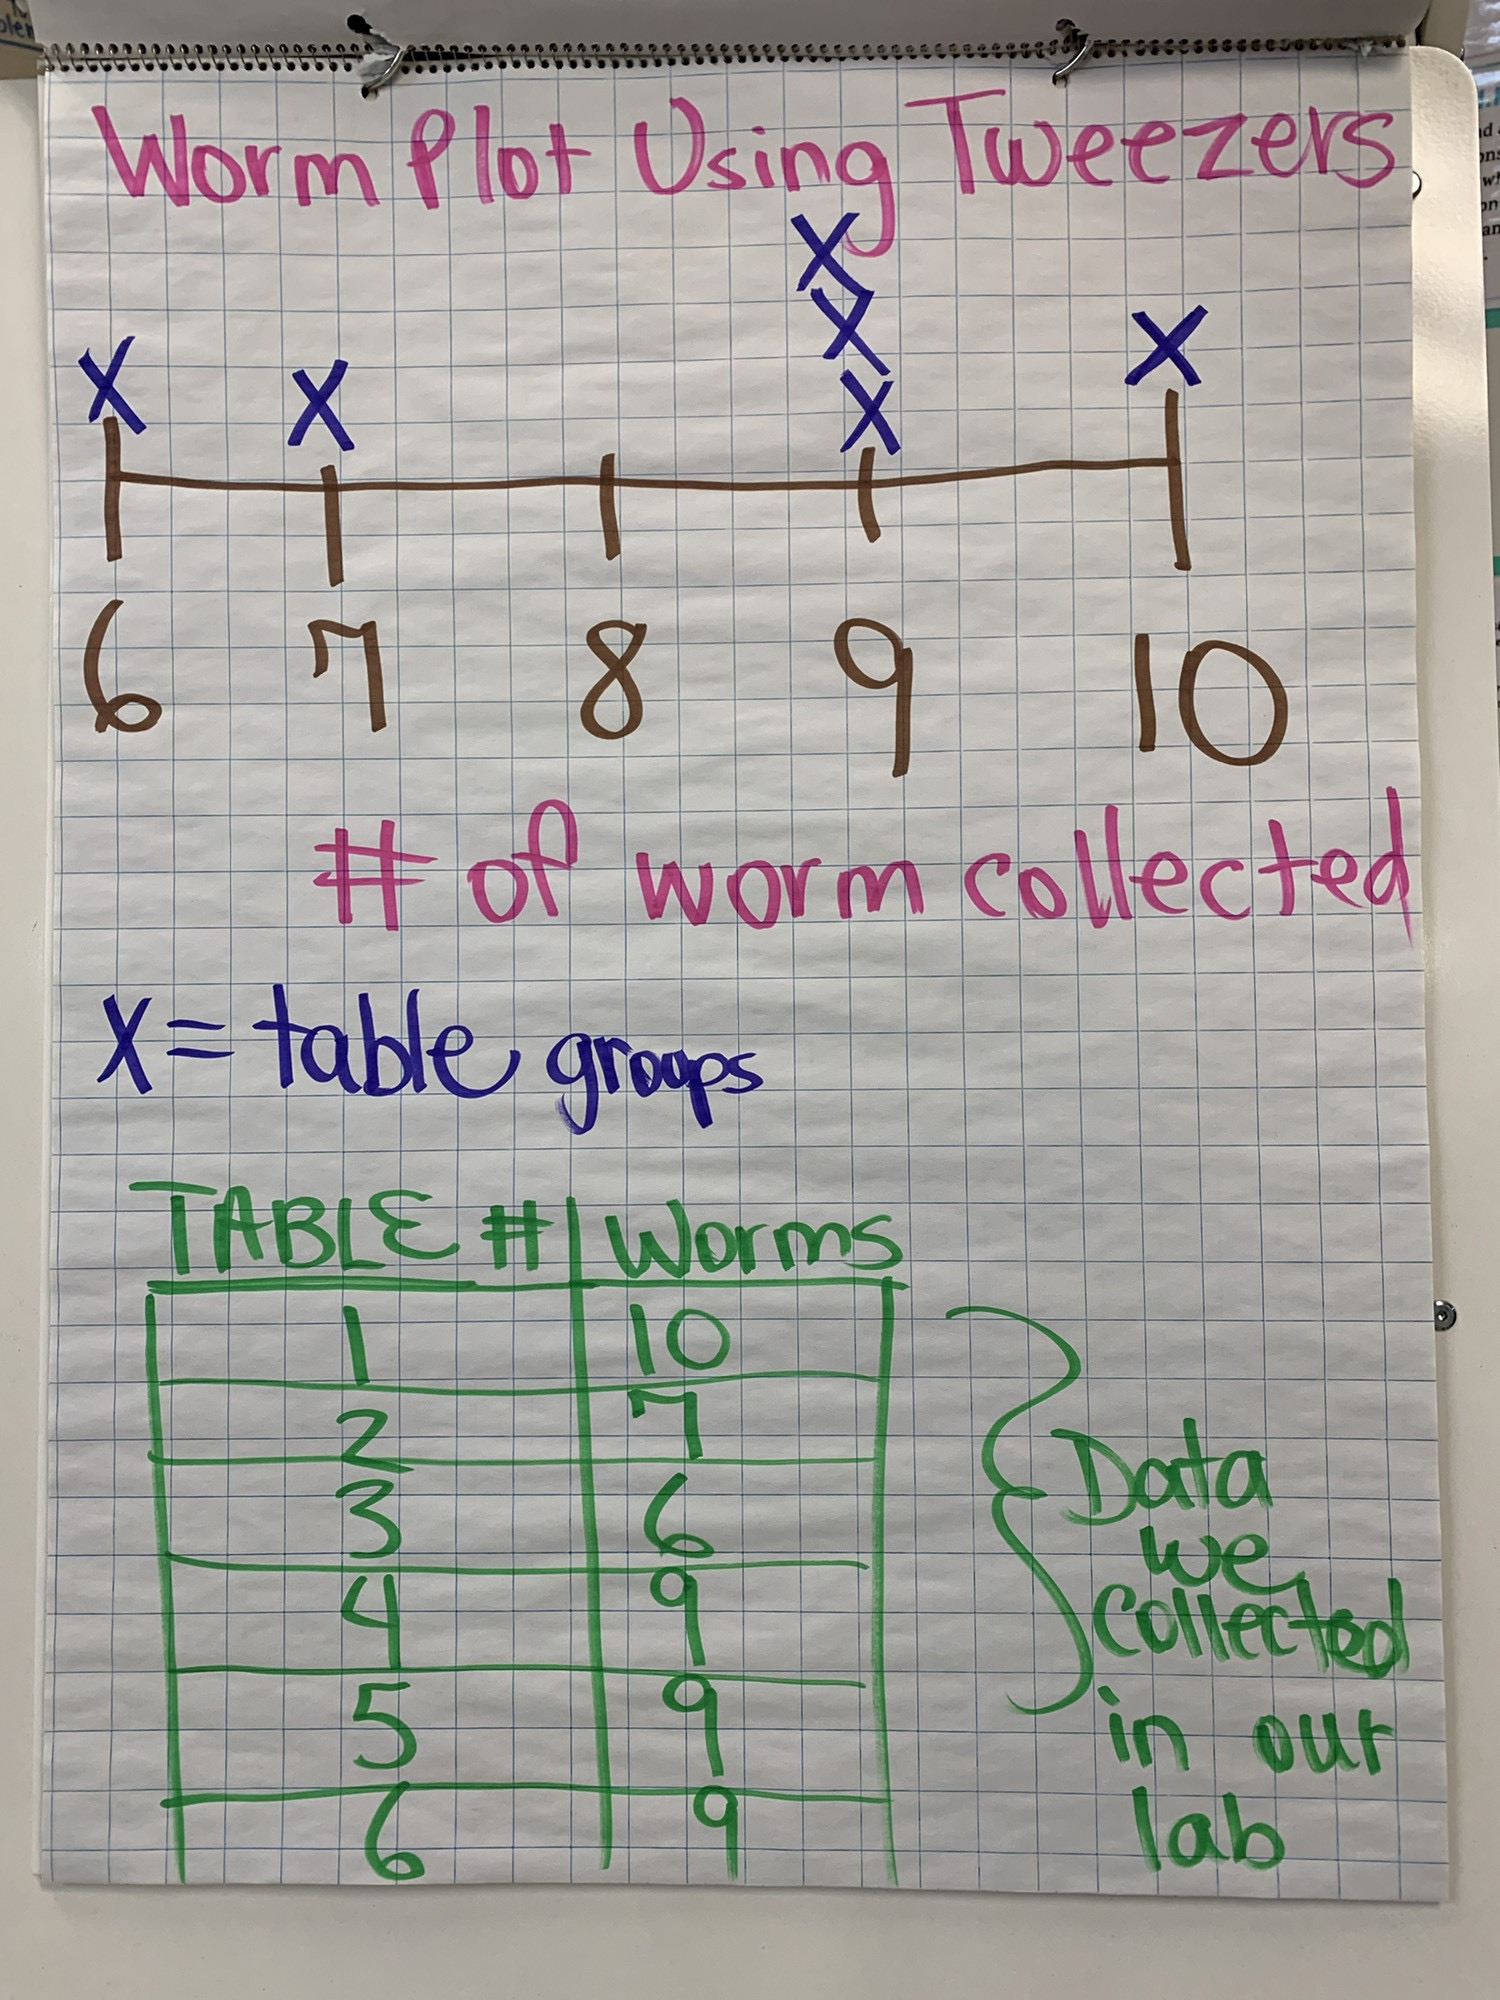 Worm Plot Using Tweezers
X
X
X X X X
6 7 8 9 10
# of worm collected
X = table groups
TABLE # Worms
1 10
2 7
3 6
4 9
5 9
6 9
Data
we
collected
in our
lab